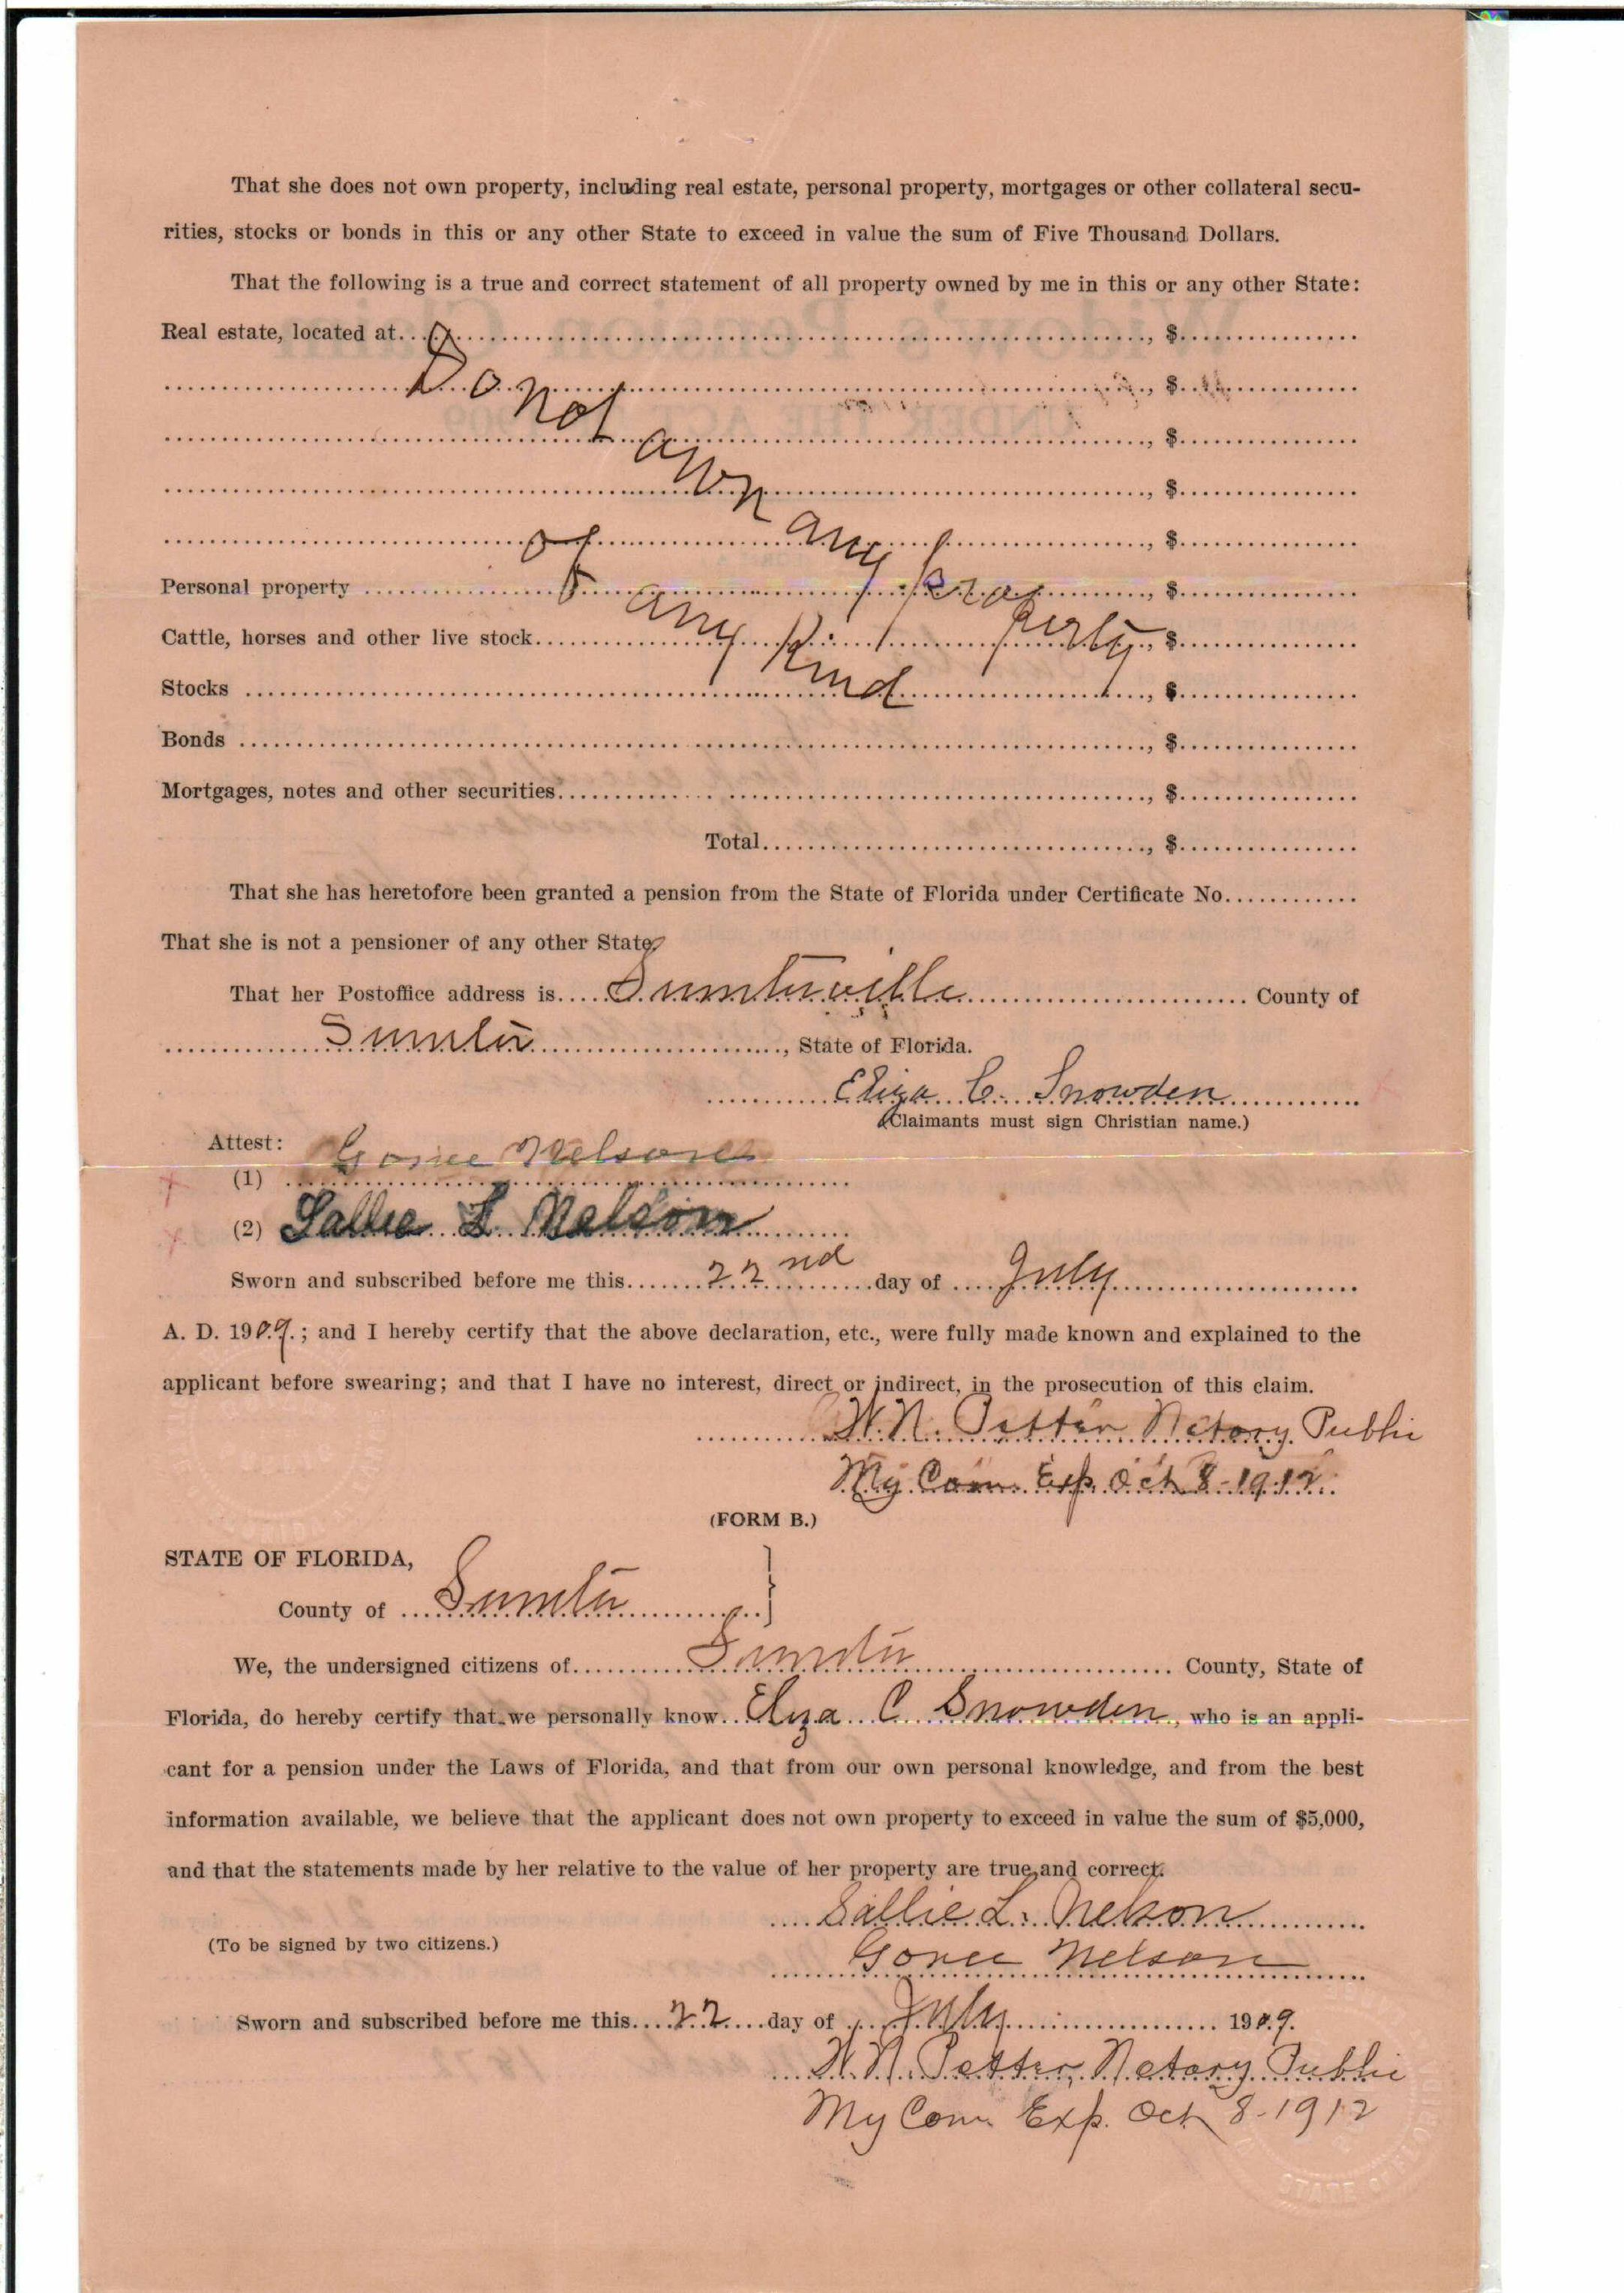 That she does not own property, including real estate, personal property, mortgages or other collateral secu-
rities, stocks or bonds in this or any other State to exceed in value the sum of Five Thousand Dollars.
That the following is a true and correct statement of all property owned by me in this or any other State:
Real estate, located at , $
, $
, $
, $
, $
Do not own any property
of any kind
Personal property , $
Cattle, horses and other live stock , $
Stocks , $
Bonds , $
Mortgages, notes and other securities , $
Total , $
That she has heretofore been granted a pension from the State of Florida under Certificate No.
That she is not a pensioner of any other State.
That her Postoffice address is Sumterville County of
Sumter , State of Florida.
Eliza C. Snowden
(Claimants must sign Christian name.)
Attest:
(1) Nelson
(2) Sallie L. Nelson
Sworn and subscribed before me this 22nd day of July
A. D. 1909.; and I hereby certify that the above declaration, etc., were fully made known and explained to the
applicant before swearing; and that I have no interest, direct or indirect, in the prosecution of this claim.
W. N. Notary Public
My Com. Exp. Oct 8-1912
(FORM B.)
STATE OF FLORIDA,
County of Sumter
We, the undersigned citizens of Sumter County, State of
Florida, do hereby certify that we personally know Eliza C Snowden, who is an appli-
cant for a pension under the Laws of Florida, and that from our own personal knowledge, and from the best
information available, we believe that the applicant does not own property to exceed in value the sum of $5,000,
and that the statements made by her relative to the value of her property are true and correct.
Sallie L. Nelson
(To be signed by two citizens.)
Nelson
Sworn and subscribed before me this 22 day of July 1909.
W. N. Notary Public
My Com Exp. Oct 8-1912
STATE OF FLORIDA